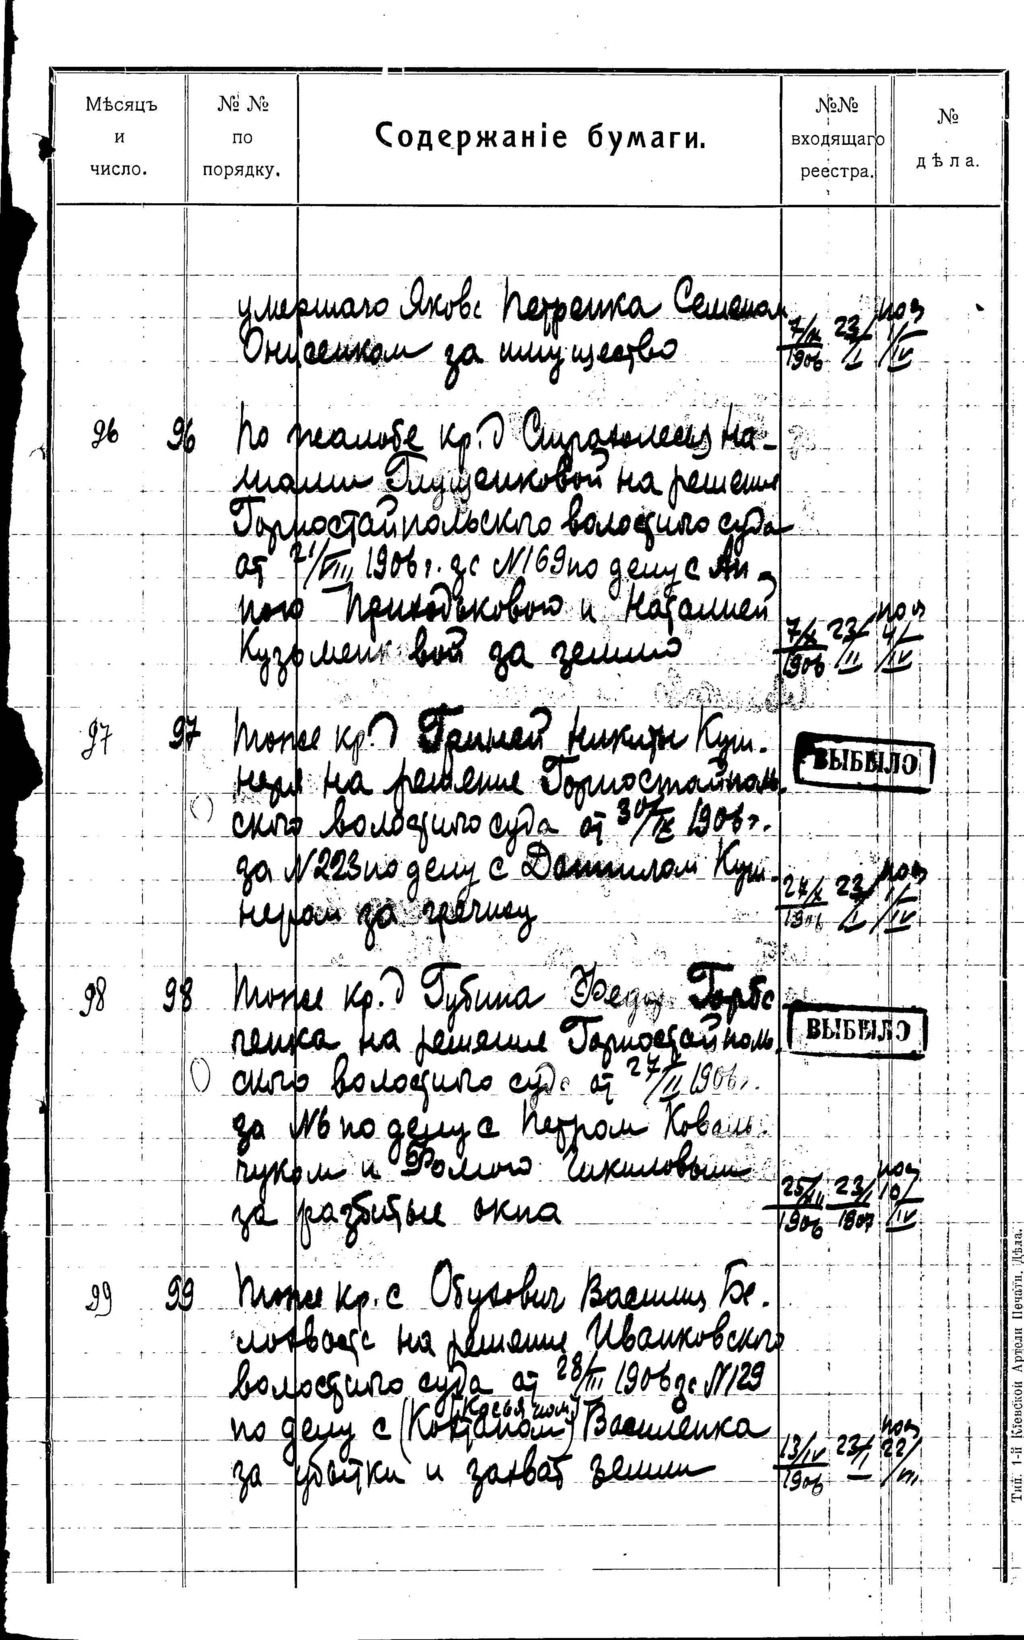 Мѣсяцъ
и
число.
№ №
по
порядку.
Содержаніе бумаги.
№№
входящаго
реестра.
№
дѣла.
умершаго Якова Петренка Семеном
Онисенком за имущество
7/X 1906 23/I 1/IV
96 96 по жалобе кр. д Страхолесья На-
талии Глущенковой на решение
Горностайпольского волостного суда
от 21/VIII 1906 г. за N 169 по делу с Ан-
ною Приходьковою и Наталией
Кузьменковой за землю
7/X 1906 23/II 4/IV
97 97 тоже кр. д Никиты Куш-
неря на решение Горностайполь-
ского волостного суда от 30/IX 1906 г.
за N 223 по делу с Данилом Куш-
нером за гречку
ВЫБЫЛО
27/X 1906 23/I 1/IV
98 98 тоже кр. д Губина Федора Горба-
ченка на решение Горностайполь-
ского волостного суда от 27/II 1906 г.
за N 6 по делу с Петром Коваль-
чуком и Фомою
за разбитые окна
ВЫБЫЛО
25/XII 1906 23/I 1907 10/IV
99 99 тоже кр. с Обухович Василия Бе-
лохвоста на решение Иванковского
волостного суда от 28/III 1906 за N 129
по делу с (Касьяном) Василенка
за убытки и захват земли
13/IV 1906 23/I 22/III
Тип. 1-й Кіевской Артели Печатн. Дѣла.